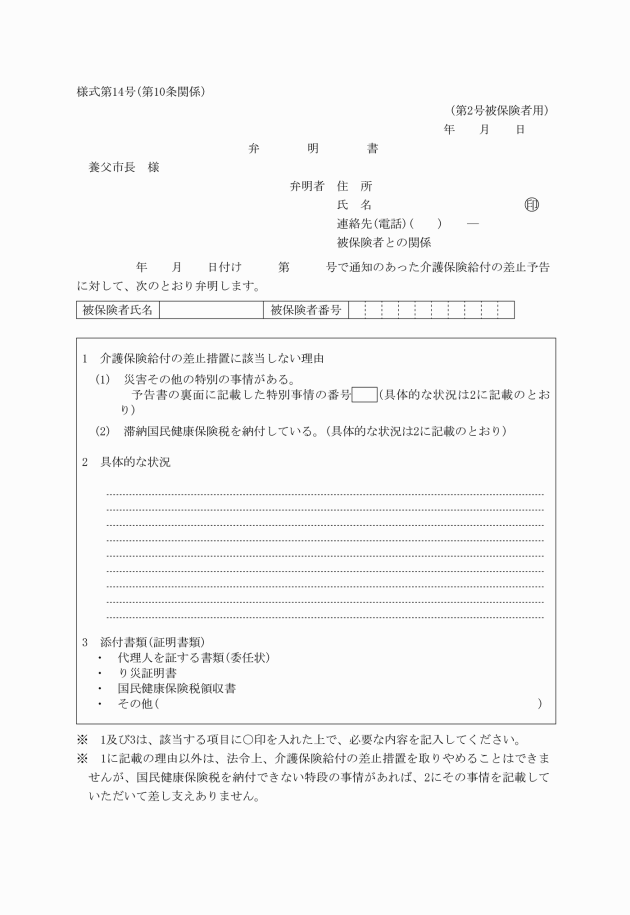 様式第14号(第10条関係)
(第2号被保険者用)
年　　月　　日
弁　　　　明　　　　書
養父市長　様
弁明者　住　所
氏　名　　　　　　　　　　　　　㊞
連絡先(電話)(　　)　　―
被保険者との関係
年　　月　　日付け　　　第　　　号で通知のあった介護保険給付の差止予告
に対して、次のとおり弁明します。
被保険者氏名　　　　　　　　　被保険者番号
1　介護保険給付の差止措置に該当しない理由
(1)　災害その他の特別の事情がある。
予告書の裏面に記載した特別事情の番号　　(具体的な状況は2に記載のとお
り)
(2)　滞納国民健康保険税を納付している。(具体的な状況は2に記載のとおり)
2　具体的な状況
3　添付書類(証明書類)
・　代理人を証する書類(委任状)
・　り災証明書
・　国民健康保険税領収書
・　その他(　　　　　　　　　　　　　　　　　　　　　　　　　　　　　　　　)
※　1及び3は、該当する項目に○印を入れた上で、必要な内容を記入してください。
※　1に記載の理由以外は、法令上、介護保険給付の差止措置を取りやめることはできま
せんが、国民健康保険税を納付できない特段の事情があれば、2にその事情を記載して
いただいて差し支えありません。